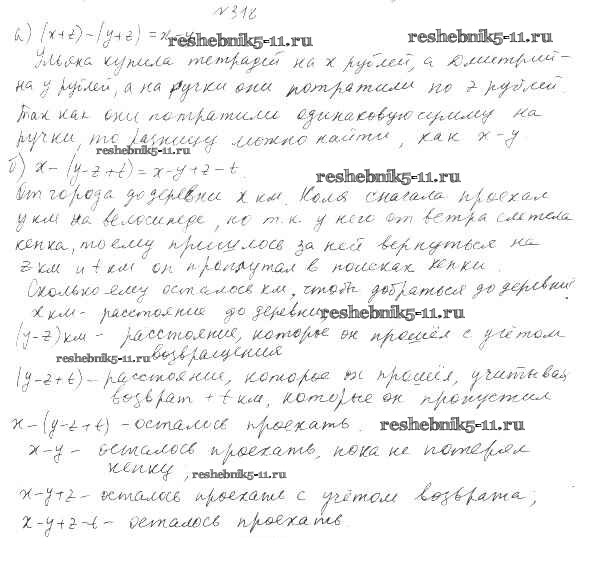 №318
а) (x+z)-(y+z)=x-y
reshebnik5-11.ru reshebnik5-11.ru
купила тетрадей на x рублей, а Дмитрий -
на y рублей, а на ручки они потратили по z рублей.
Так как они потратили одинаковую сумму на
ручки, то разницу можно найти, как x-y.
reshebnik5-11.ru
б) x-(y-z+t)=x-y+z-t.
reshebnik5-11.ru
От города до деревни x км. Коля сначала проехал
y км на велосипеде, но т.к. у него от ветра слетела
кепка, то ему пришлось за ней вернуться на
z км и t км он в поисках кепки.
Сколько ему осталось км, чтобы добраться до деревни?
x км - расстояние до деревни, reshebnik5-11.ru
(y-z) км - расстояние, которое он прошёл с учётом
reshebnik5-11.ru возвращения
(y-z+t) - расстояние, которое он прошёл, учитывая
возврат + t км, которые он пропустил
x-(y-z+t) - осталось проехать. reshebnik5-11.ru
x-y - осталось проехать, пока не потерял
кепку, reshebnik5-11.ru
x-y+z - осталось проехать с учётом возврата;
x-y+z-t - осталось проехать.